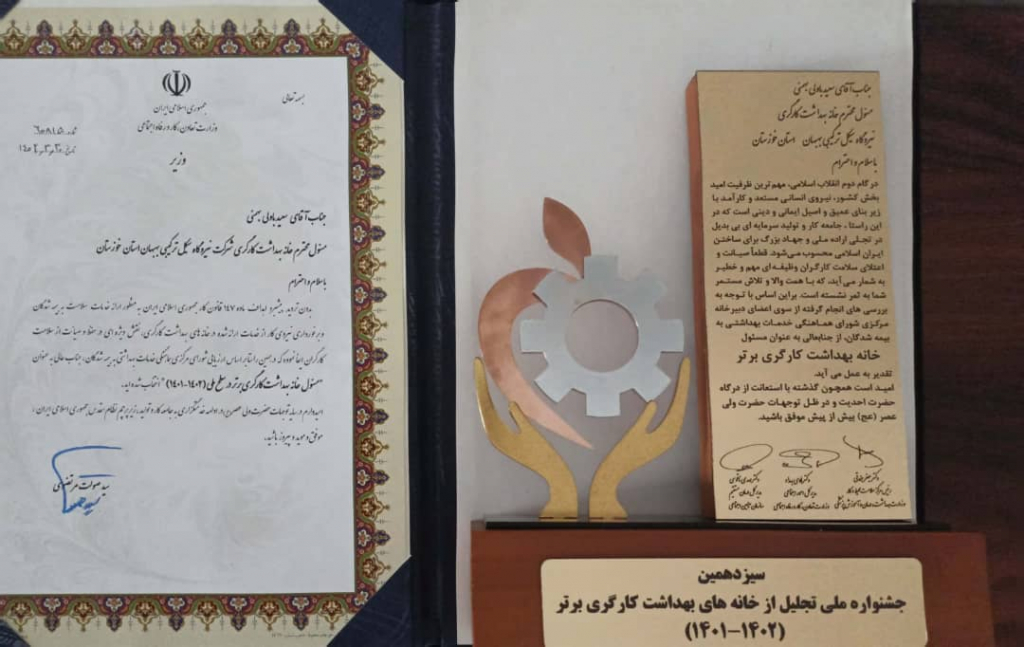 بسمه تعالی
جمهوری اسلامی ایران
وزارت تعاون، کار و رفاه اجتماعی
وزیر
جناب آقای سعید باولی بهمئی
مسئول محترم خانه بهداشت کارگری شرکت نیروگاه سیکل ترکیبی بهبهان استان خوزستان
با سلام و احترام
بدون تردید، پیشبرد اهداف ماده ۱۴۷ قانون کار جمهوری اسلامی ایران به منظور ارائه خدمات سلامت به بیمه شدگان
و برخورداری نیروی کار از خدمات ارائه شده در خانه های بهداشت کارگری، نقش ویژه ای در حفظ و صیانت از سلامت
کارگران ایفا نموده که در همین راستا بر اساس ارزیابی شورای مرکزی هماهنگی خدمات بهداشتی به بیمه شدگان، جناب عالی به عنوان
"مسئول خانه بهداشت کارگری برتر در سطح ملی (۱۴۰۲-۱۴۰۱)" انتخاب شده اید.
امیدوارم در سایه توجهات حضرت ولی عصر(عج) در ادامه خدمتگزاری به جامعه کار و تولید، زیر پرچم نظام مقدس جمهوری اسلامی ایران
موفق و موید و پیروز باشید.
سید صولت مرتضوی
جناب آقای سعید باولی بهمئی
مسئول محترم خانه بهداشت کارگری
نیروگاه سیکل ترکیبی بهبهان استان خوزستان
با سلام و احترام
در گام دوم انقلاب اسلامی، مهم ترین ظرفیت امید
بخش کشور، نیروی انسانی مستعد و کارآمد با
زیر بنای عمیق و اصیل ایمانی و دینی است که در
این راستا، جامعه کار و تولید سرمایه ای بی بدیل
در تجلی اراده ملی و جهاد بزرگ برای ساختن
ایران اسلامی محسوب می‌شود. قطعاً صیانت و
اعتلای سلامت کارگران وظیفه ای مهم و خطیر
به شمار می آید، که با همت والا و تلاش مستمر
شما به ثمر نشسته است. براین اساس با توجه به
بررسی های انجام گرفته از سوی اعضای دبیرخانه
مرکزی شورای هماهنگی خدمات بهداشتی به
بیمه شدگان، از جنابعالی به عنوان مسئول
خانه بهداشت کارگری برتر
تقدیر به عمل می آید.
امید است همچون گذشته با استعانت از درگاه
حضرت احدیت و در ظل توجهات حضرت ولی
عصر (عج) بیش از پیش موفق باشید.
سیزدهمین
جشنواره ملی تجلیل از خانه های بهداشت کارگری برتر
(۱۴۰۱-۱۴۰۲)